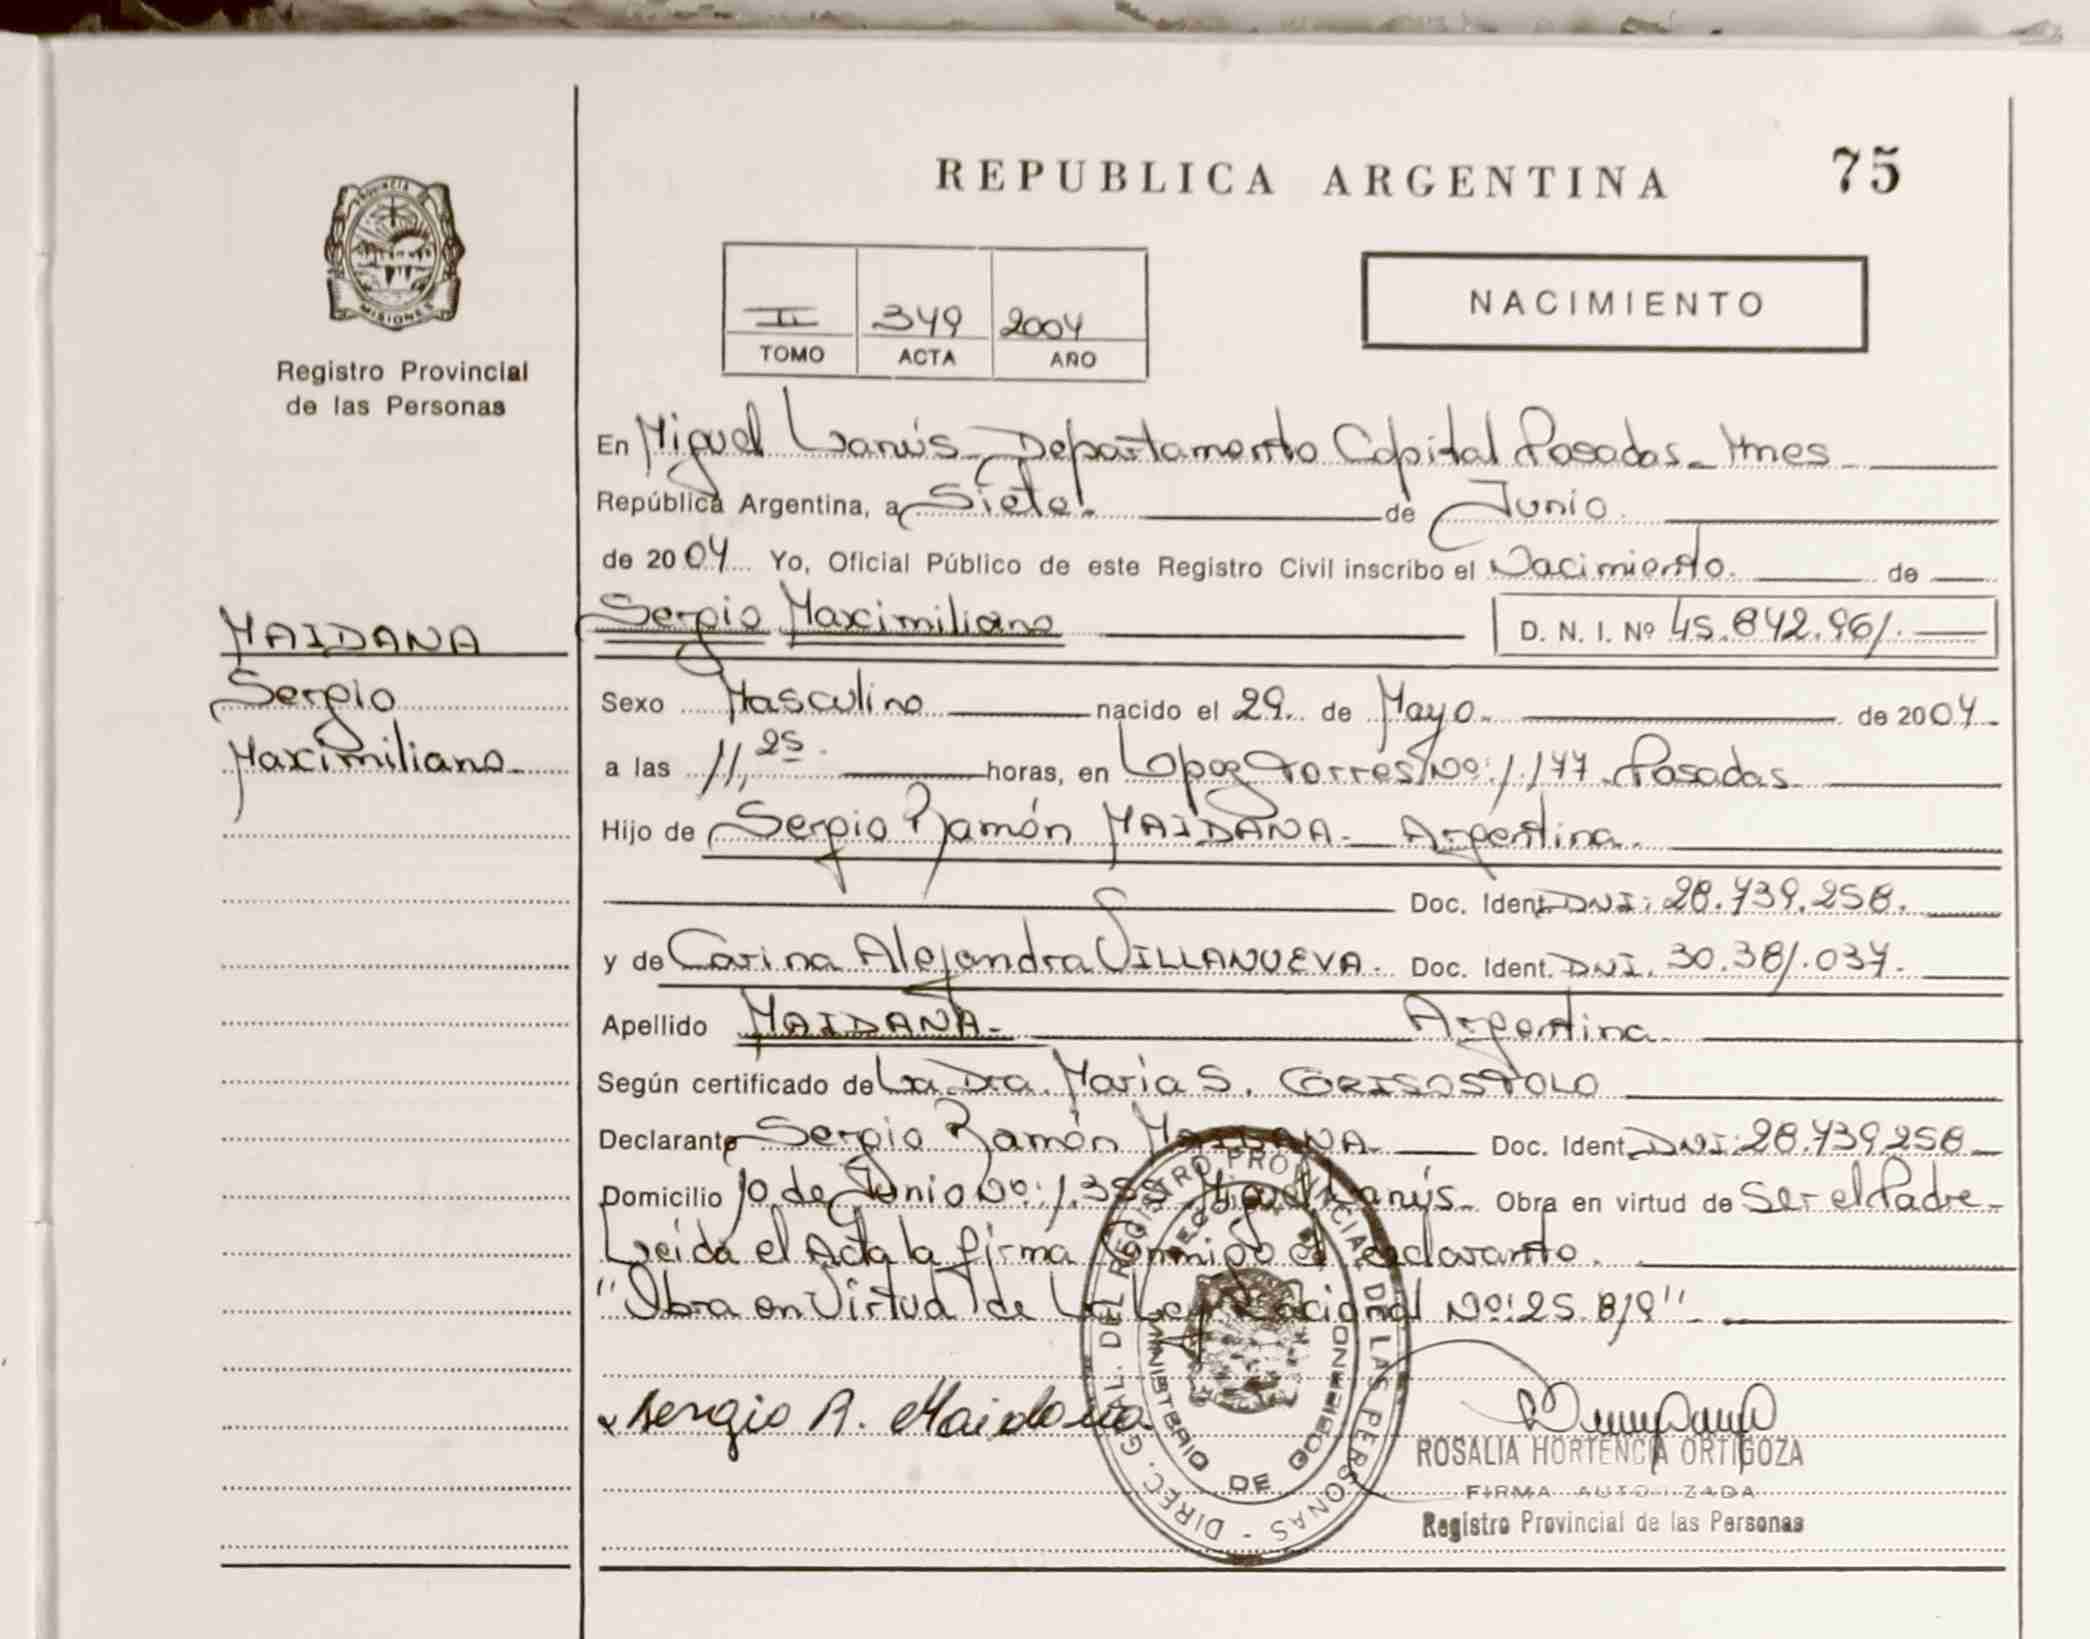 REPUBLICA ARGENTINA 75
PROVINCIA DE MISIONES
Registro Provincial
de las Personas
II 349 2004
TOMO ACTA AÑO
NACIMIENTO
En Miguel Lanús - Departamento Capital Posadas - Mnes
República Argentina, a Siete. de Junio.
de 2004 Yo, Oficial Público de este Registro Civil inscribo el Nacimiento. de
Sergio Maximiliano D. N. I. Nº 45.842.961.
MAIDANA
Sergio
Maximiliano.
Sexo Masculino nacido el 29. de Mayo. de 2004.
a las 11,25. horas, en Lopez Torres Nº: 1.177. Posadas.
Hijo de Sergio Ramón MAIDANA - Argentina.
Doc. Ident. DNI: 28.739.258.
y de Carina Alejandra VILLANUEVA. Doc. Ident. DNI. 30.381.037.
Apellido MAIDANA. Argentina.
Según certificado de La Dra. Maria S.
Declarante Sergio Ramón MAIDANA. Doc. Ident. DNI: 28.739.258
Domicilio 10 de Junio Nº: Miguel Lanús. Obra en virtud de Ser el Padre.
Leida el Acta la firma Conmigo el declarante.
"Obra en Virtud de La Ley Nacional Nº: 25.819"
Sergio R. Maidana
DIREC. GRAL. DEL REGISTRO PROVINCIAL DE LAS PERSONAS
MINISTERIO DE GOBIERNO
ROSALIA HORTENCIA ORTIGOZA
FIRMA AUTORIZADA
Registro Provincial de las Personas